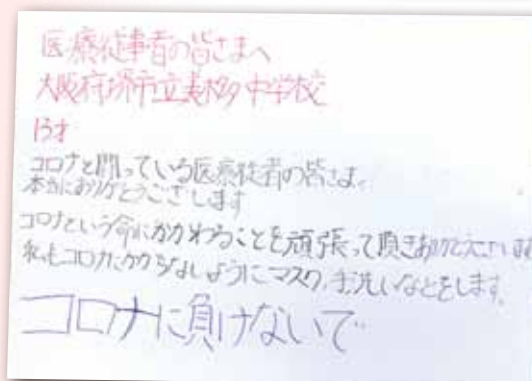 医療従事者の皆さまへ
大阪府堺市立美木多中学校
13才
コロナと闘っている医療従者の皆さま。
本当にありがとうございます
コロナという命にかかわることを頑張って頂きありがとうございます
私もコロナにかからないようにマスク、手洗いなどをします。
コロナに負けないで